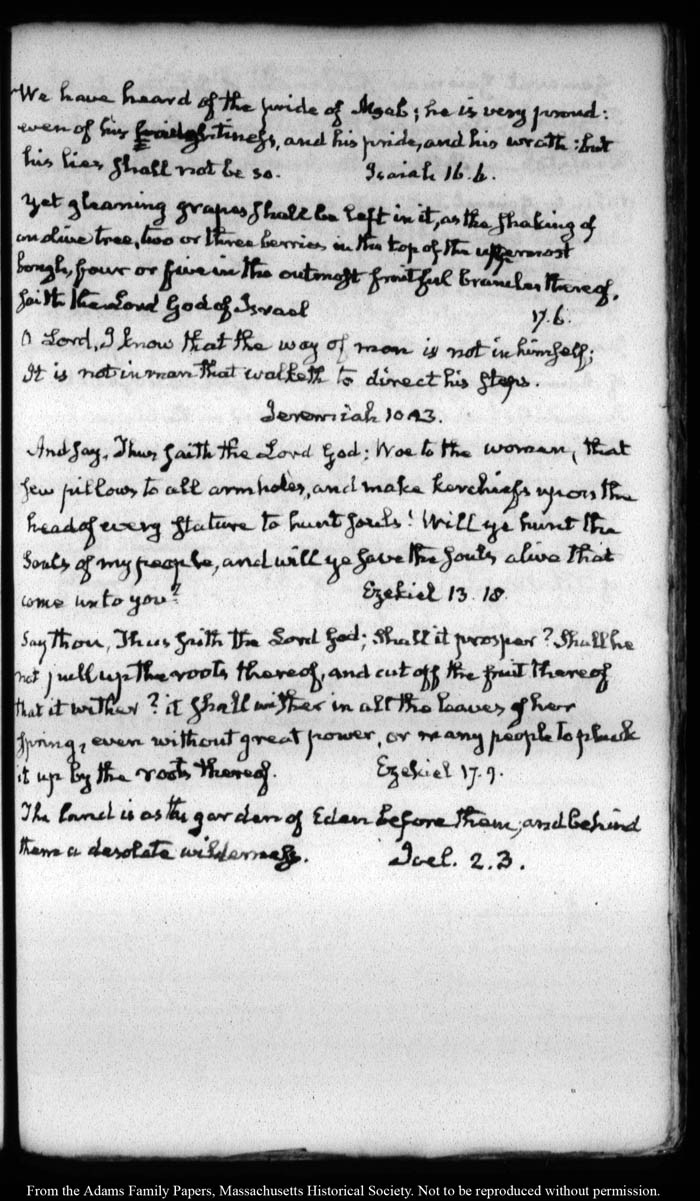 We have heard of the pride of Moab; he is very proud:
even of his haughtiness, and his pride, and his wrath: but
his lies shall not be so. Isaiah 16.6.
Yet gleaning grapes shall be left in it, as the shaking of
an olive tree, two or three berries in the top of the uppermost
bough, four or five in the outmost fruitful branches thereof,
saith the Lord God of Israel 17.6.
O Lord, I know that the way of man is not in himself;
It is not in man that walketh to direct his steps.
Jeremiah 10.23.
And say, Thus saith the Lord God; Woe to the women, that
sew pillows to all armholes, and make kerchiefs upon the
head of every stature to hunt souls! Will ye hunt the
souls of my people, and will ye save the souls alive that
come unto you? Ezekiel 13.18.
Say thou, Thus saith the Lord God; Shall it prosper? Shall he
not pull up the roots thereof, and cut off the fruit thereof
that it wither? it shall wither in all the leaves of her
spring, even without great power, or many people to pluck
it up by the roots thereof. Ezekiel 17.9.
The land is as the garden of Eden before them, and behind
them a desolate wilderness. Joel. 2.3.
From the Adams Family Papers, Massachusetts Historical Society. Not to be reproduced without permission.